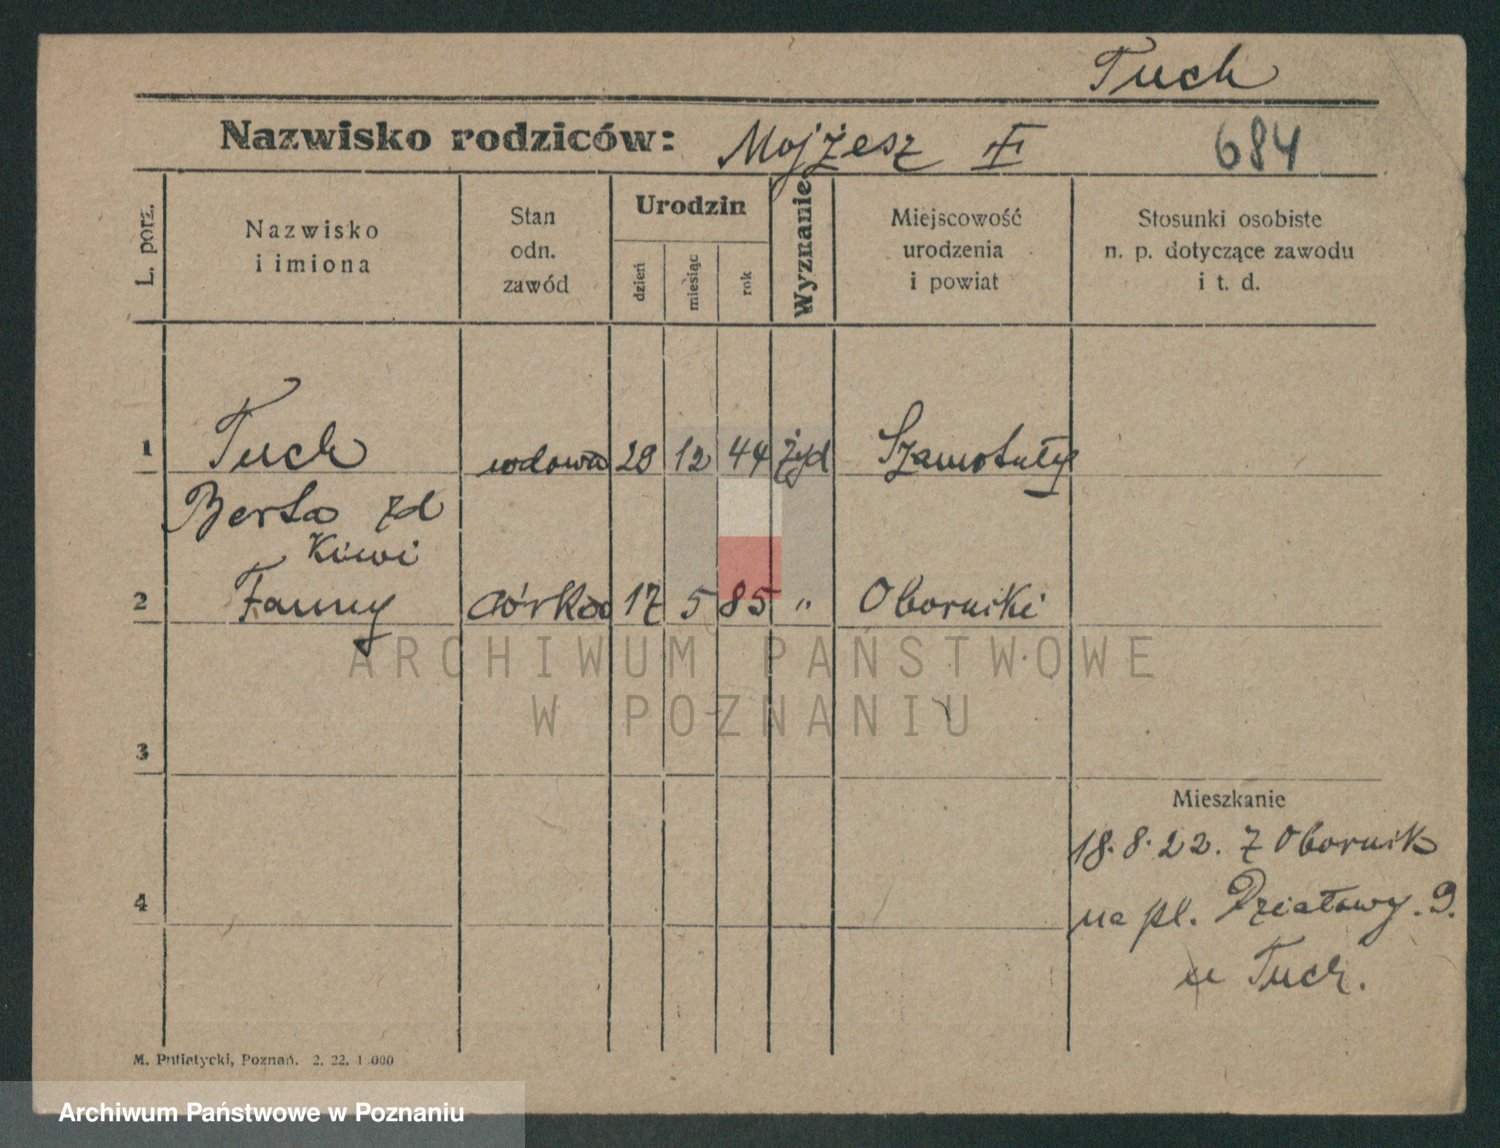 Tuch
Nazwisko rodziców: Mojżesz 684
L. porz.
Nazwisko
i imiona
Stan
odn.
zawód
Urodzin
dzień
miesiąc
rok
Wyznanie
Miejscowość
urodzenia
i powiat
Stosunki osobiste
n. p. dotyczące zawodu
i t. d.
1 Tuch wdowa 28 12 44 żyd Szamotuły
Berta zd
Kiwi
2 Fanny córka 17 5 85 " Oborniki
ARCHIWUM PAŃSTWOWE
W POZNANIU
3
Mieszkanie
18.8.22. z Obornik
4
na pl. Działowy. 9.
u Tuch.
M. Putiatycki, Poznań. 2. 22. 1.000
Archiwum Państwowe w Poznaniu